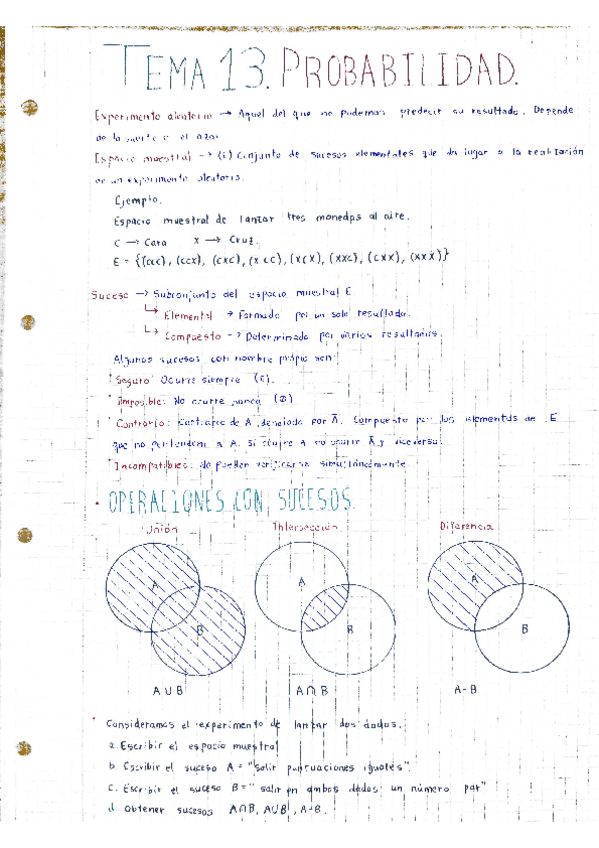 TEMA 13. PROBABILIDAD.
Experimento aleatorio → Aquel del que no podemos predecir su resultado. Depende
de la suerte o el azar
Espacio muestral → (E) Conjunto de sucesos elementales que da lugar a la realización
de un experimento aleatorio.
Ejemplo.
Espacio muestral de lanzar tres monedas al aire.
C → Cara X → Cruz.
E = {(ccc), (ccx), (cxc), (xcc), (xcx), (xxc), (cxx), (xxx)}
Suceso → Subconjunto del espacio muestral E
↳ Elemental → Formado por un solo resultado.
↳ Compuesto → Determinado por varios resultados.
Algunos sucesos con nombre propio son:
Seguro: Ocurre siempre (E).
Imposible: No ocurre nunca (Ø)
Contrario: Contrario de A, denotado por Ā. Compuesto por los elementos de E
que no pertenecen a A. Si ocurre A no ocurre Ā y viceversa.
Incompatibles: No pueden verificarse simultáneamente.
OPERACIONES CON SUCESOS.
Unión Intersección Diferencia
A A A
B B B
A∪B A∩B A-B
Consideramos el experimento de lanzar dos dados.
a. Escribir el espacio muestral
b. Escribir el suceso A = "salir puntuaciones iguales".
c. Escribir el suceso B = "salir en ambos dados un número par"
d. Obtener sucesos A∩B, A∪B, A-B.